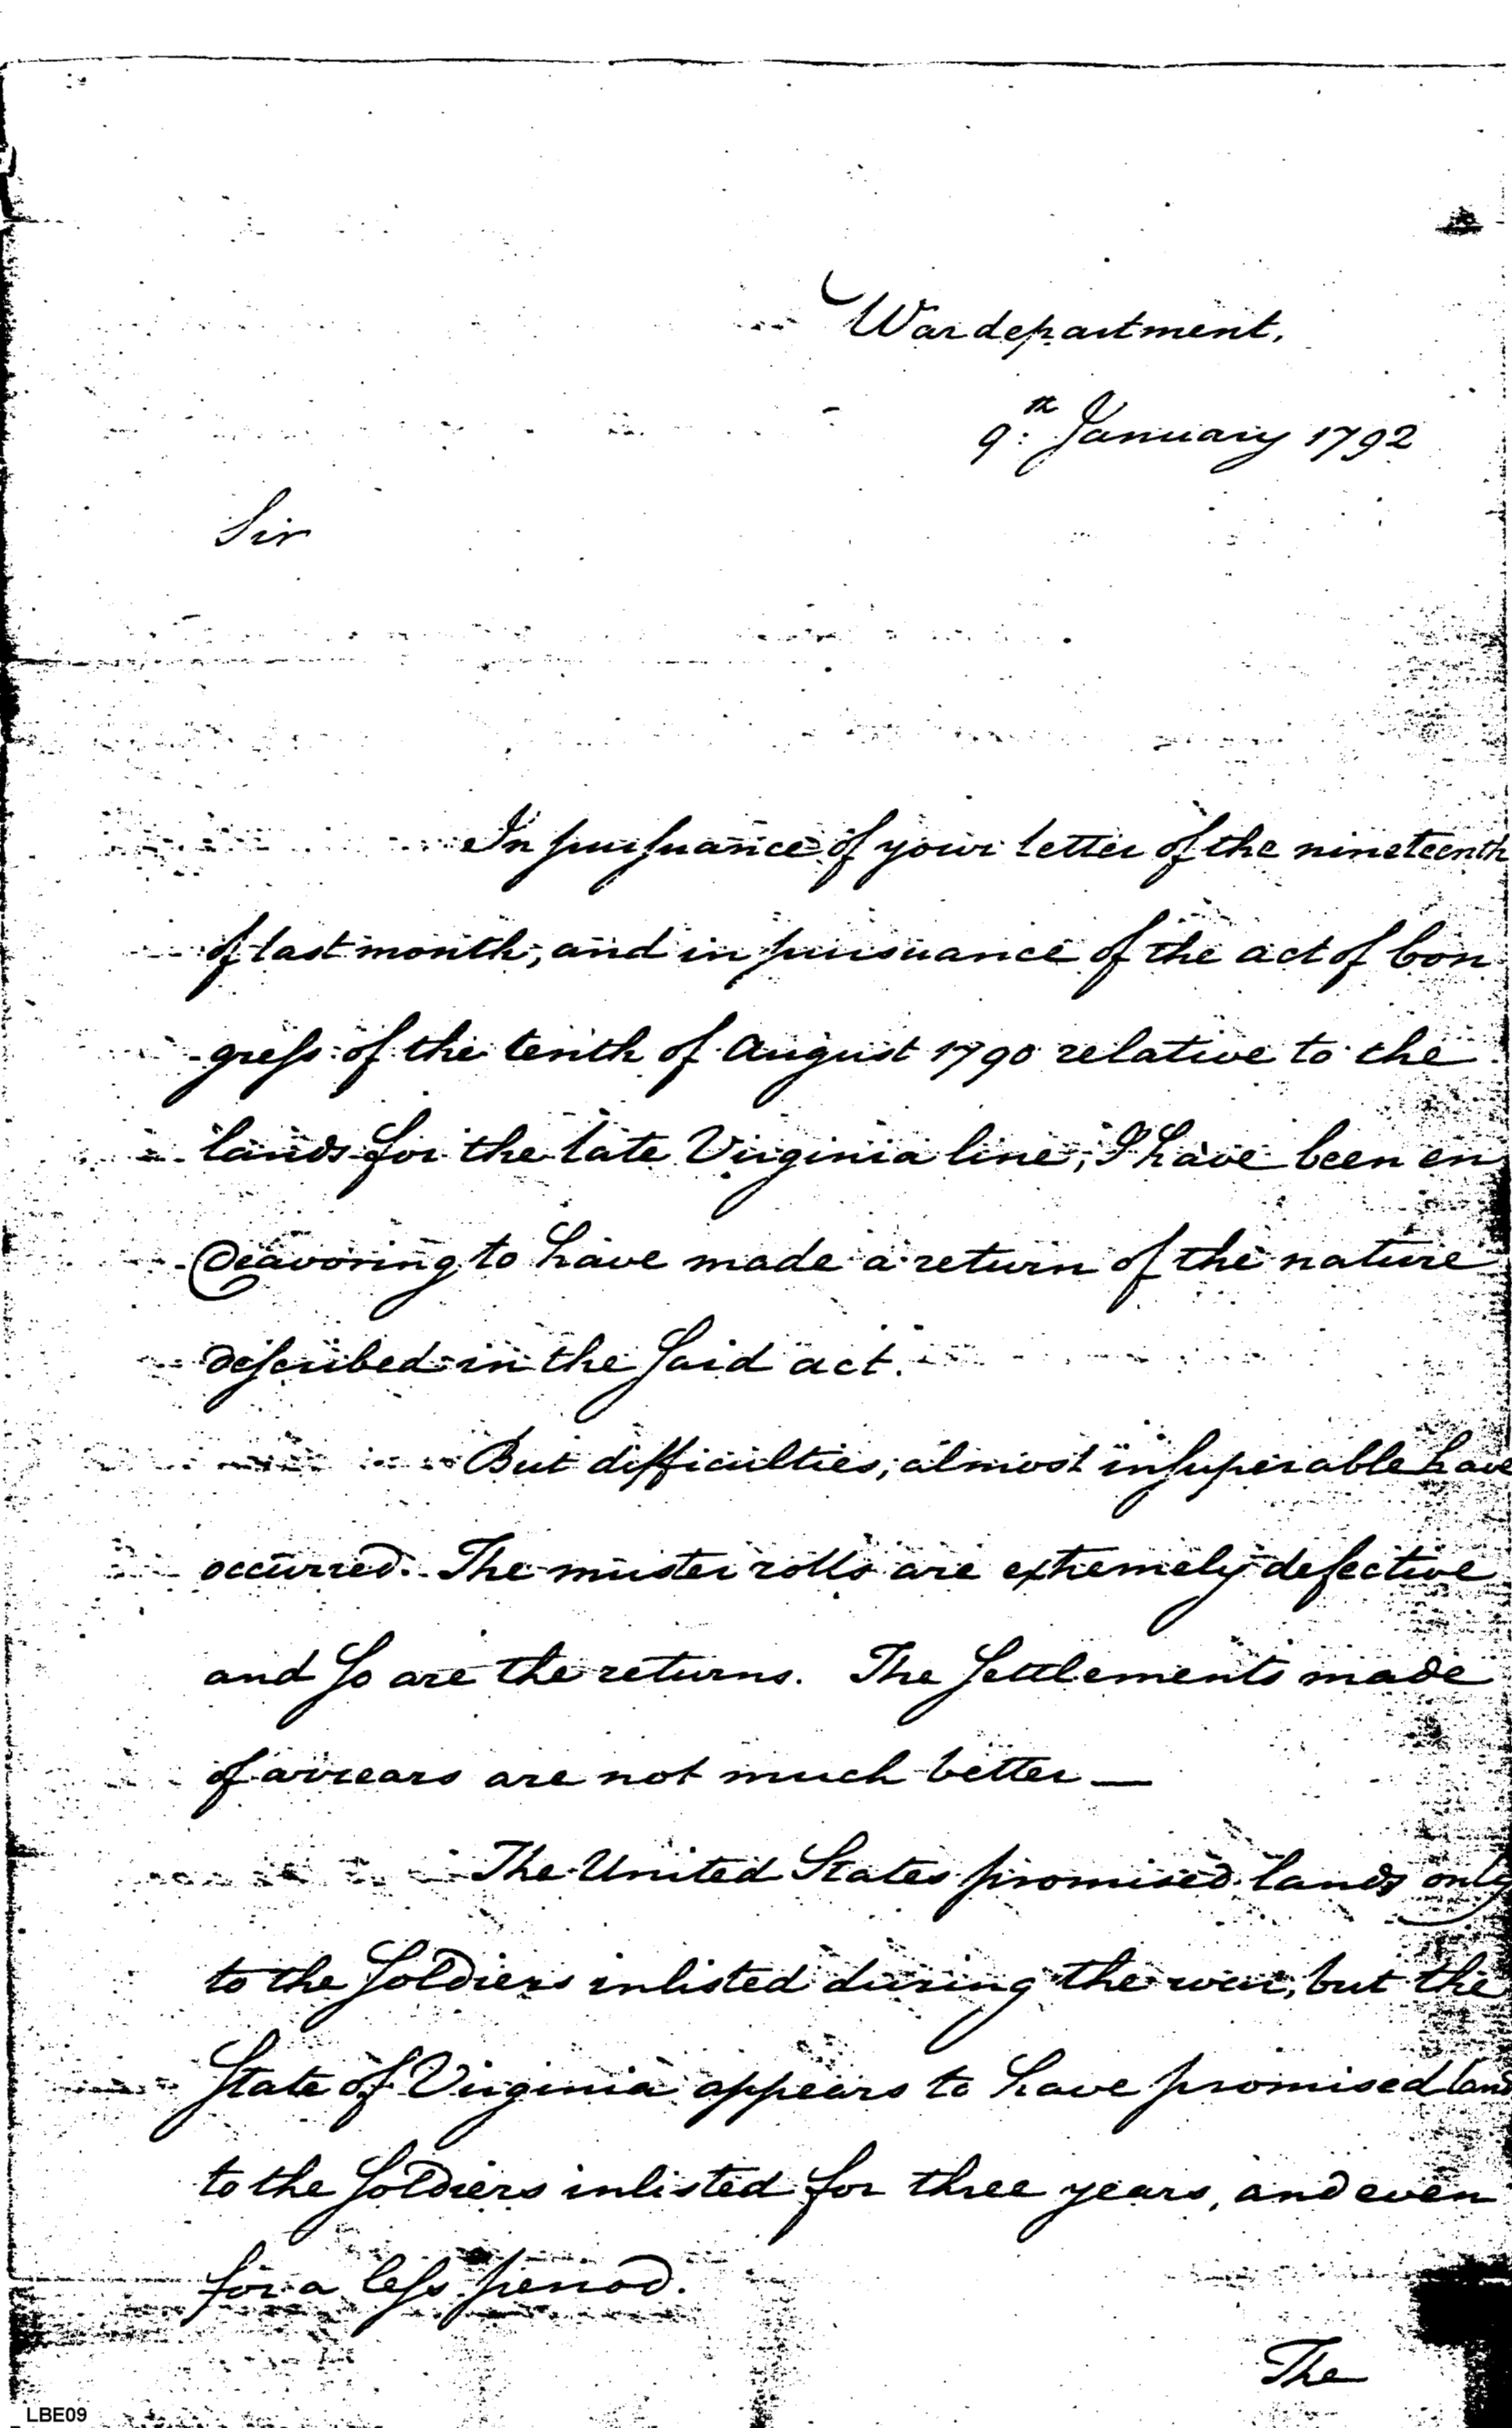 War department,
9th January 1792
Sir
In pursuance of your letter of the nineteenth
of last month, and in pursuance of the act of Con
gress of the tenth of August 1790 relative to the
lands for the late Virginia line, I have been en
deavoring to have made a return of the nature
described in the said act.
But difficulties, almost insuperable have
occurred. The muster rolls are extremely defective
and so are the returns. The settlements made
of arrears are not much better —
The United States promised lands only
to the soldiers inlisted during the war, but the
State of Virginia appears to have promised land
to the soldiers inlisted for three years, and even
for a less period.
The
LBE09